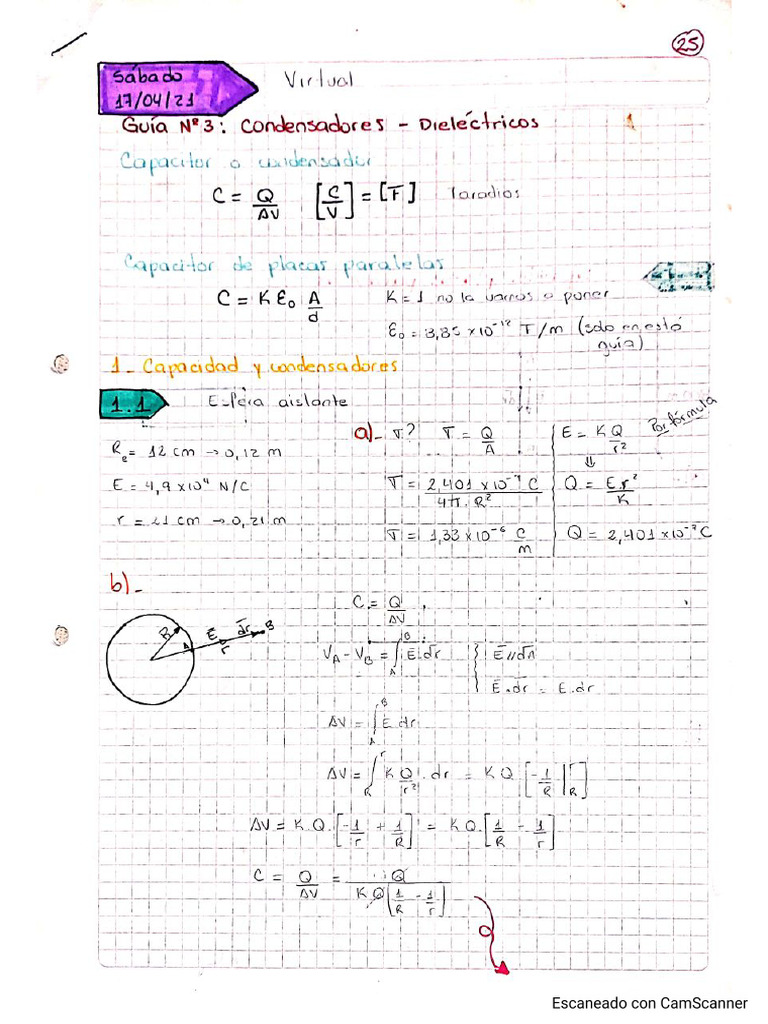 25
Sábado
17/04/21
Virtual
Guía Nº 3: Condensadores - Dieléctricos
1
Capacitor o condensador
C = Q/ΔV [C/V] = [F] faradios
Capacitor de placas paralelas
C = K ε₀ A/d
K = 1 no la vamos a poner
ε₀ = 8,85 x 10⁻¹² F/m (solo en está guía)
1_ Capacidad y condensadores
1.1 Esfera aislante
Rₑ = 12 cm → 0,12 m
E = 4,9 x 10⁴ N/C
r = 21 cm → 0,21 m
a)_ σ? σ = Q/A
σ = 2,401 x 10⁻⁷ C / 4π . R²
σ = 1,33 x 10⁻⁶ C/m
E = K Q/r² Por fórmula
⇓
Q = E r²/K
Q = 2,401 x 10⁻⁷ C
b)_
R A E r dr B
C = Q/ΔV
V_A - V_B = ∫_A^B E . dr
E // dr
E . dr = E . dr
ΔV = ∫_A^B E dr
ΔV = ∫_R^r K Q/r² . dr = K Q [-1/R |_R^r]
ΔV = K Q . [-1/r + 1/R] = K Q . [1/R - 1/r]
C = Q/ΔV = Q / K Q [1/R - 1/r]
Escaneado con CamScanner